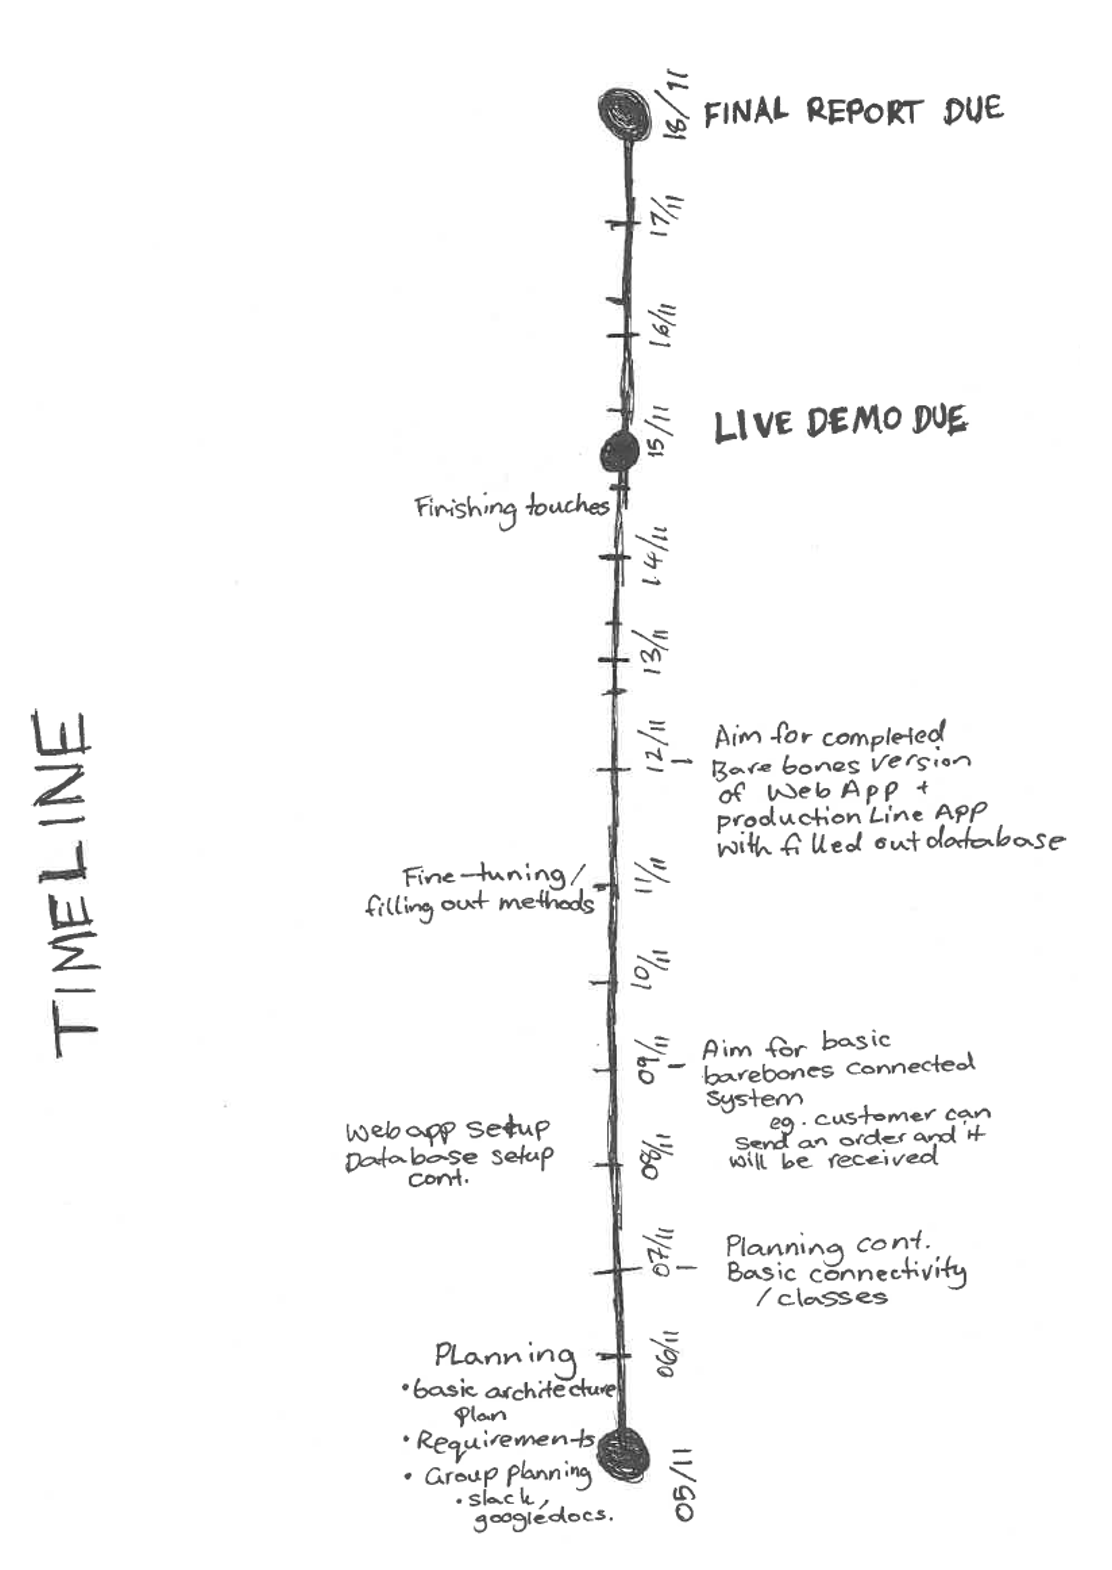 TIMELINE
18/11
FINAL REPORT DUE
17/11
16/11
15/11
LIVE DEMO DUE
Finishing touches
14/11
13/11
12/11
Aim for completed
Bare bones version
of Web App +
production Line App
with filled out database
11/11
Fine-tuning/
filling out methods
10/11
09/11
Aim for basic
barebones connected
system
eg. customer can
send an order and it
will be received
Web app setup
Database setup
cont.
08/11
07/11
Planning cont.
Basic connectivity
/classes
06/11
Planning
• basic architecture
plan
• Requirements
• Group planning
• slack,
googledocs.
05/11